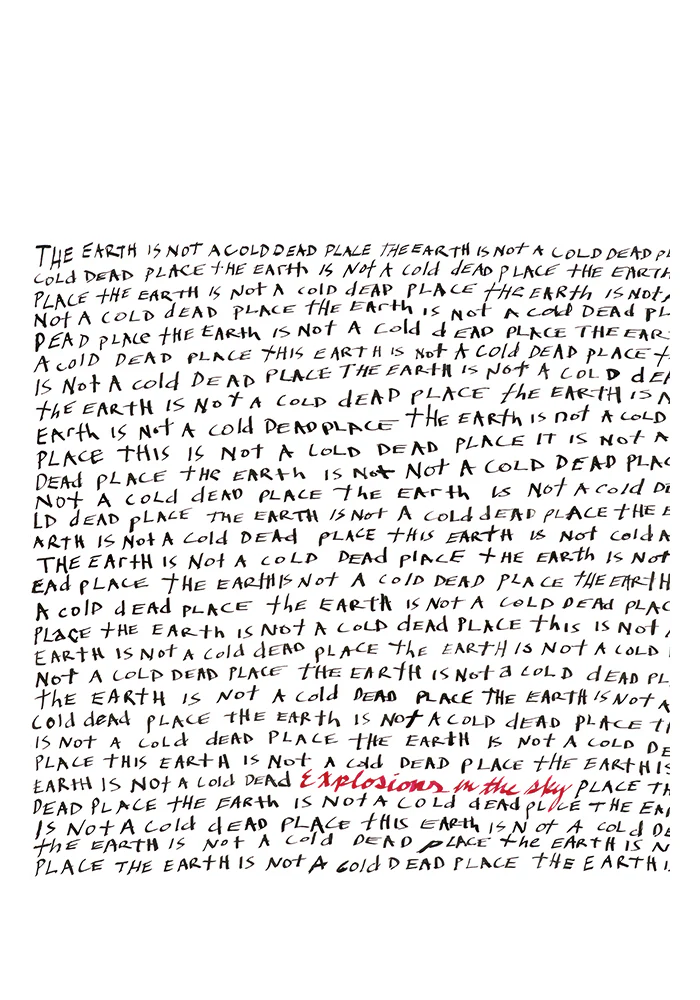 THE EARTH IS NOT A COLD DEAD PLALE THE EARTH IS NOT A COLD DEAD PL
COld DEAD PLACE tHE EARth IS Not A Cold dEAD PLACE tHE EARTH
PLACE tHE EARTH IS Not A cold dEAD PLACE tHE EARth IS Not A
Not A COLD dEAD PLACE tHE EARth IS Not A cold DEAD PL
DEAD PLAcE tHE EARth IS Not A Cold dEAD PLACE THE EAR
A COlD DEAD PLACE tHIS EARTH IS Not A Cold DEAD PLACE t
IS Not A cold DEAD PLACE THE EARTH IS Not A COLD dEA
tHE EARTH IS Not A COLD dEAD PLACE tHE EARTH IS A
EARth IS Not A Cold DEAD PLACE tHE EARth IS not A COLD
PLACE THIS IS Not A LOLD DEAD PLACE IT IS Not A
DEAD PLACE tHE EARth IS Not Not A COLD DEAD PLAC
Not A COLD dEAD PLACE tHE EARth IS Not A Cold DE
LD dEAD pLACE THE EARTH IS Not A Cold dEAD PLACE tHE E
ARTH IS Not A Cold DEAD PLACE tHIS EARTH IS Not Cold A
THE EARtH IS Not A COLD DEAD PlACE tHE EARth IS Not
EAD PLACE tHE EARtH IS Not A COlD DEAD PLACE THE EARtH
A COlD dEAD PLACE tHE EARTH IS Not A COLD DEAd PLAC
PLACE tHE EARth IS Not A COLD dEAd PLACE this IS Not A
EARTH IS Not A Cold dEAD PLACE tHE EARTH IS Not A COLD
Not A COLD DEAD PLACE tHE EARtH IS Not a COLD dEAD PL
tHE EARTH IS Not A Cold DEAD PLACE THE EARTH IS Not A
COld dEAd PLACE tHE EARth IS Not A COLD dEAD PLACE t
IS Not A cold dEAD PLACE tHE EARtH IS Not A COLD DE
PLACE THIS EARTH IS Not A cold DEAD PLACE tHE EARTH IS
EARTH IS Not A Cold DEAD Explosions in the sky PLACE TH
DEAD PLACE tHE EARth IS Not A COLd dEAd pLACE tHE EA
IS Not A Cold dEAD PLACE tHIS EARtH IS Not A Cold DE
tHE EARTH IS Not A Cold DEAD pLACE tHE EARtH IS N
PLACE THE EARtH IS Not A Cold DEAD PLACE tHE EARTH I